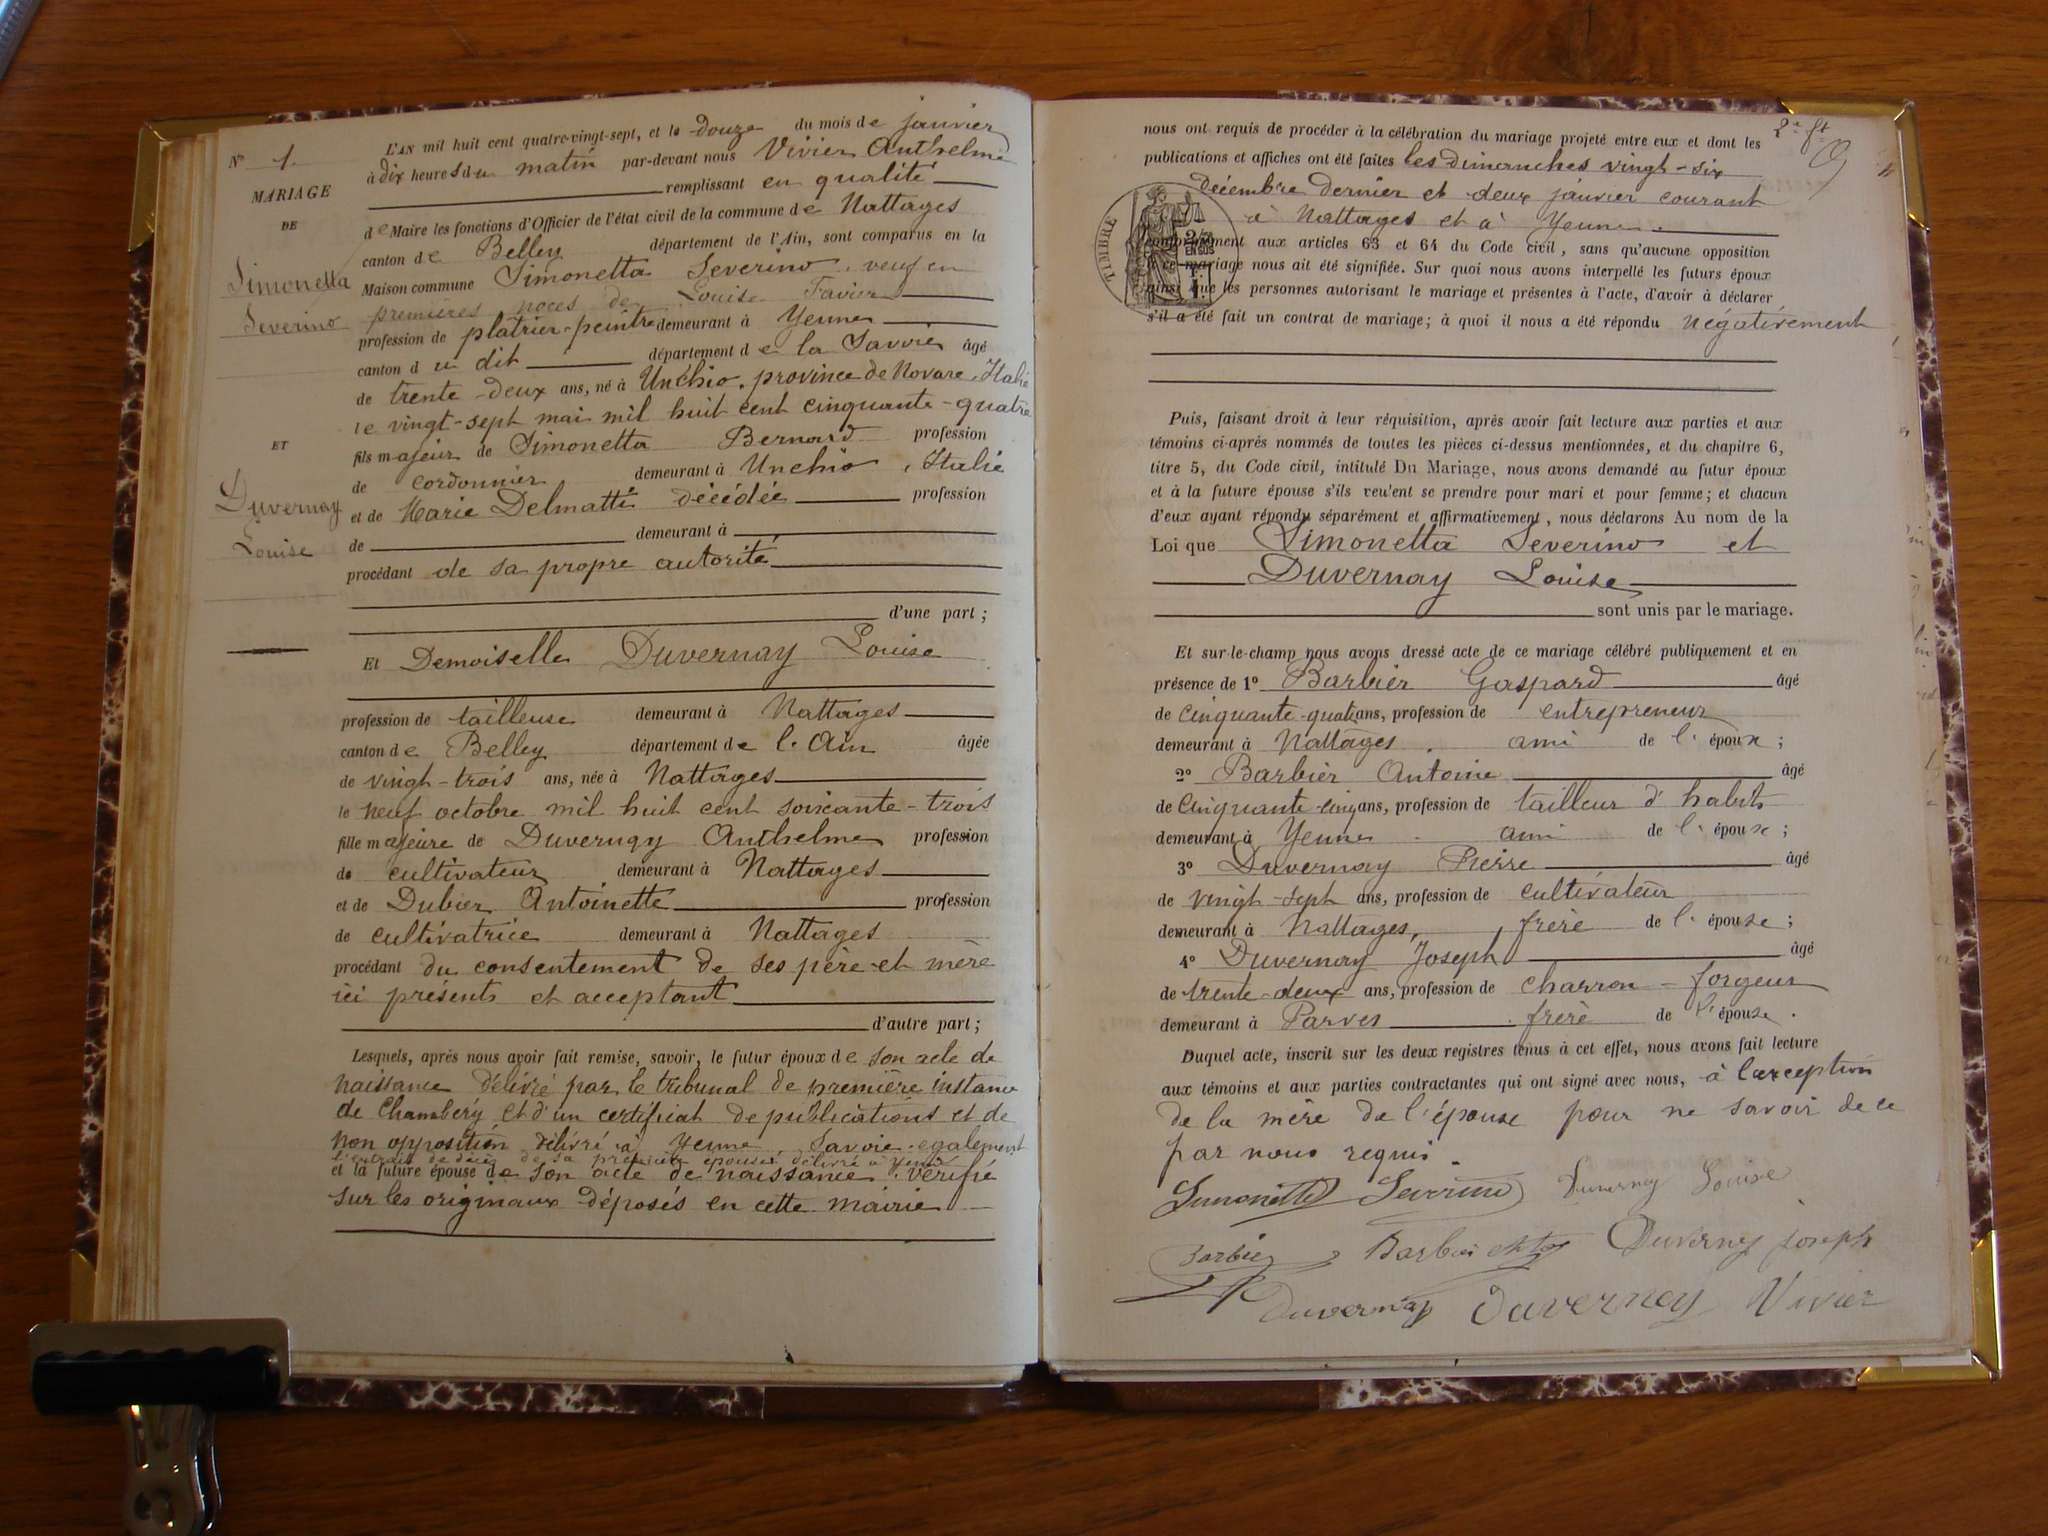 N° 1.
MARIAGE
DE
Simonetta
Severino
ET
Duvernay
Louise
L'AN mil huit cent quatre-vingt-sept, et le douze du mois de janvier
à dix heures du matin par-devant nous Vivier Anthelme
remplissant en qualité
de Maire les fonctions d'Officier de l'état civil de la commune de Nattages
canton de Belley département de l'Ain, sont comparus en la
Maison commune Simonetta Severino, veuf en
premières noces de Louise Favier
profession de platrier-peintre demeurant à Yenne
canton du dit département de la Savoie âgé
de trente-deux ans, né à Unchio, province de Novare, Italie
le vingt-sept mai mil huit cent cinquante-quatre
fils majeur de Simonetta Bernard profession
de cordonnier demeurant à Unchio, Italie
et de Marie Delmatti décédée profession
de demeurant à
procédant de sa propre autorité
d'une part ;
Et Demoiselle Duvernay Louise
profession de tailleuse demeurant à Nattages
canton de Belley département de l'Ain âgée
de vingt-trois ans, née à Nattages
le neuf octobre mil huit cent soixante-trois
fille majeure de Duvernay Anthelme profession
de cultivateur demeurant à Nattages
et de Dubier Antoinette profession
de cultivatrice demeurant à Nattages
procédant du consentement de ses père et mère
ici présents et acceptant
d'autre part ;
Lesquels, après nous avoir fait remise, savoir, le futur époux de son acte de
naissance délivré par le tribunal de première instance
de Chambéry et d'un certificat de publications et de
non opposition délivré à Yenne, Savoie, egalement
l'extrait de décès de sa première épouse délivré à Yenne
et la future épouse de son acte de naissance. Vérifié
sur les originaux déposés en cette mairie
2e ft
nous ont requis de procéder à la célébration du mariage projeté entre eux et dont les
publications et affiches ont été faites les dimanches vingt-six
décembre dernier et deux janvier courant
à Nattages et à Yenne.
TIMBRE
conformément aux articles 63 et 64 du Code civil, sans qu'aucune opposition
à ce mariage nous ait été signifiée. Sur quoi nous avons interpellé les futurs époux
ainsi que les personnes autorisant le mariage et présentes à l'acte, d'avoir à déclarer
s'il a été fait un contrat de mariage ; à quoi il nous a été répondu négativement
Puis, faisant droit à leur réquisition, après avoir fait lecture aux parties et aux
témoins ci-après nommés de toutes les pièces ci-dessus mentionnées, et du chapitre 6,
titre 5, du Code civil, intitulé Du Mariage, nous avons demandé au futur époux
et à la future épouse s'ils veu'ent se prendre pour mari et pour femme ; et chacun
d'eux ayant répondu séparément et affirmativement, nous déclarons Au nom de la
Loi que Simonetta Severino et
Duvernay Louise
sont unis par le mariage.
Et sur-le-champ nous avons dressé acte de ce mariage célébré publiquement et en
présence de 1° Barbier Gaspard âgé
de cinquante-quatre ans, profession de entrepreneur
demeurant à Nattages, ami de l'époux ;
2° Barbier Antoine âgé
de cinquante-cinq ans, profession de tailleur d'habits
demeurant à Yenne ami de l'épouse ;
3° Duvernay Pierre âgé
de vingt-sept ans, profession de cultivateur
demeurant à Nattages, frère de l'épouse ;
4° Duvernay Joseph âgé
de trente-deux ans, profession de charron-forgeur
demeurant à Parves frère de l'épouse.
Duquel acte, inscrit sur les deux registres tenus à cet effet, nous avons fait lecture
aux témoins et aux parties contractantes qui ont signé avec nous, à l'exception
de la mère de l'épouse pour ne savoir de ce
par nous requis.
Simonetta Severino Duvernay Louise
Barbier Barbier Duvernay joseph
Duvernay Duverney Vivier